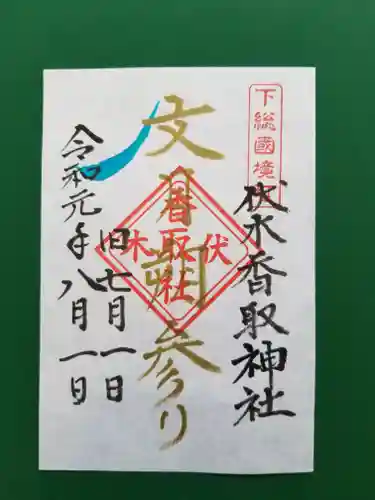 下総國境
伏木香取神社
文月朔参り
伏
香取社
木
旧七月一日
令和元年八月一日